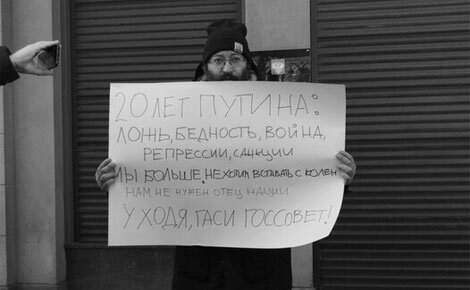 20 ЛЕТ ПУТИНА:
ЛОЖЬ, БЕДНОСТЬ, ВОЙНА,
РЕПРЕССИИ, САНКЦИИ
МЫ БОЛЬШЕ НЕ ХОТИМ ВСТАВАТЬ С КОЛЕН
НАМ НЕ НУЖЕН ОТЕЦ НАЦИИ
УХОДЯ, ГАСИ ГОССОВЕТ!